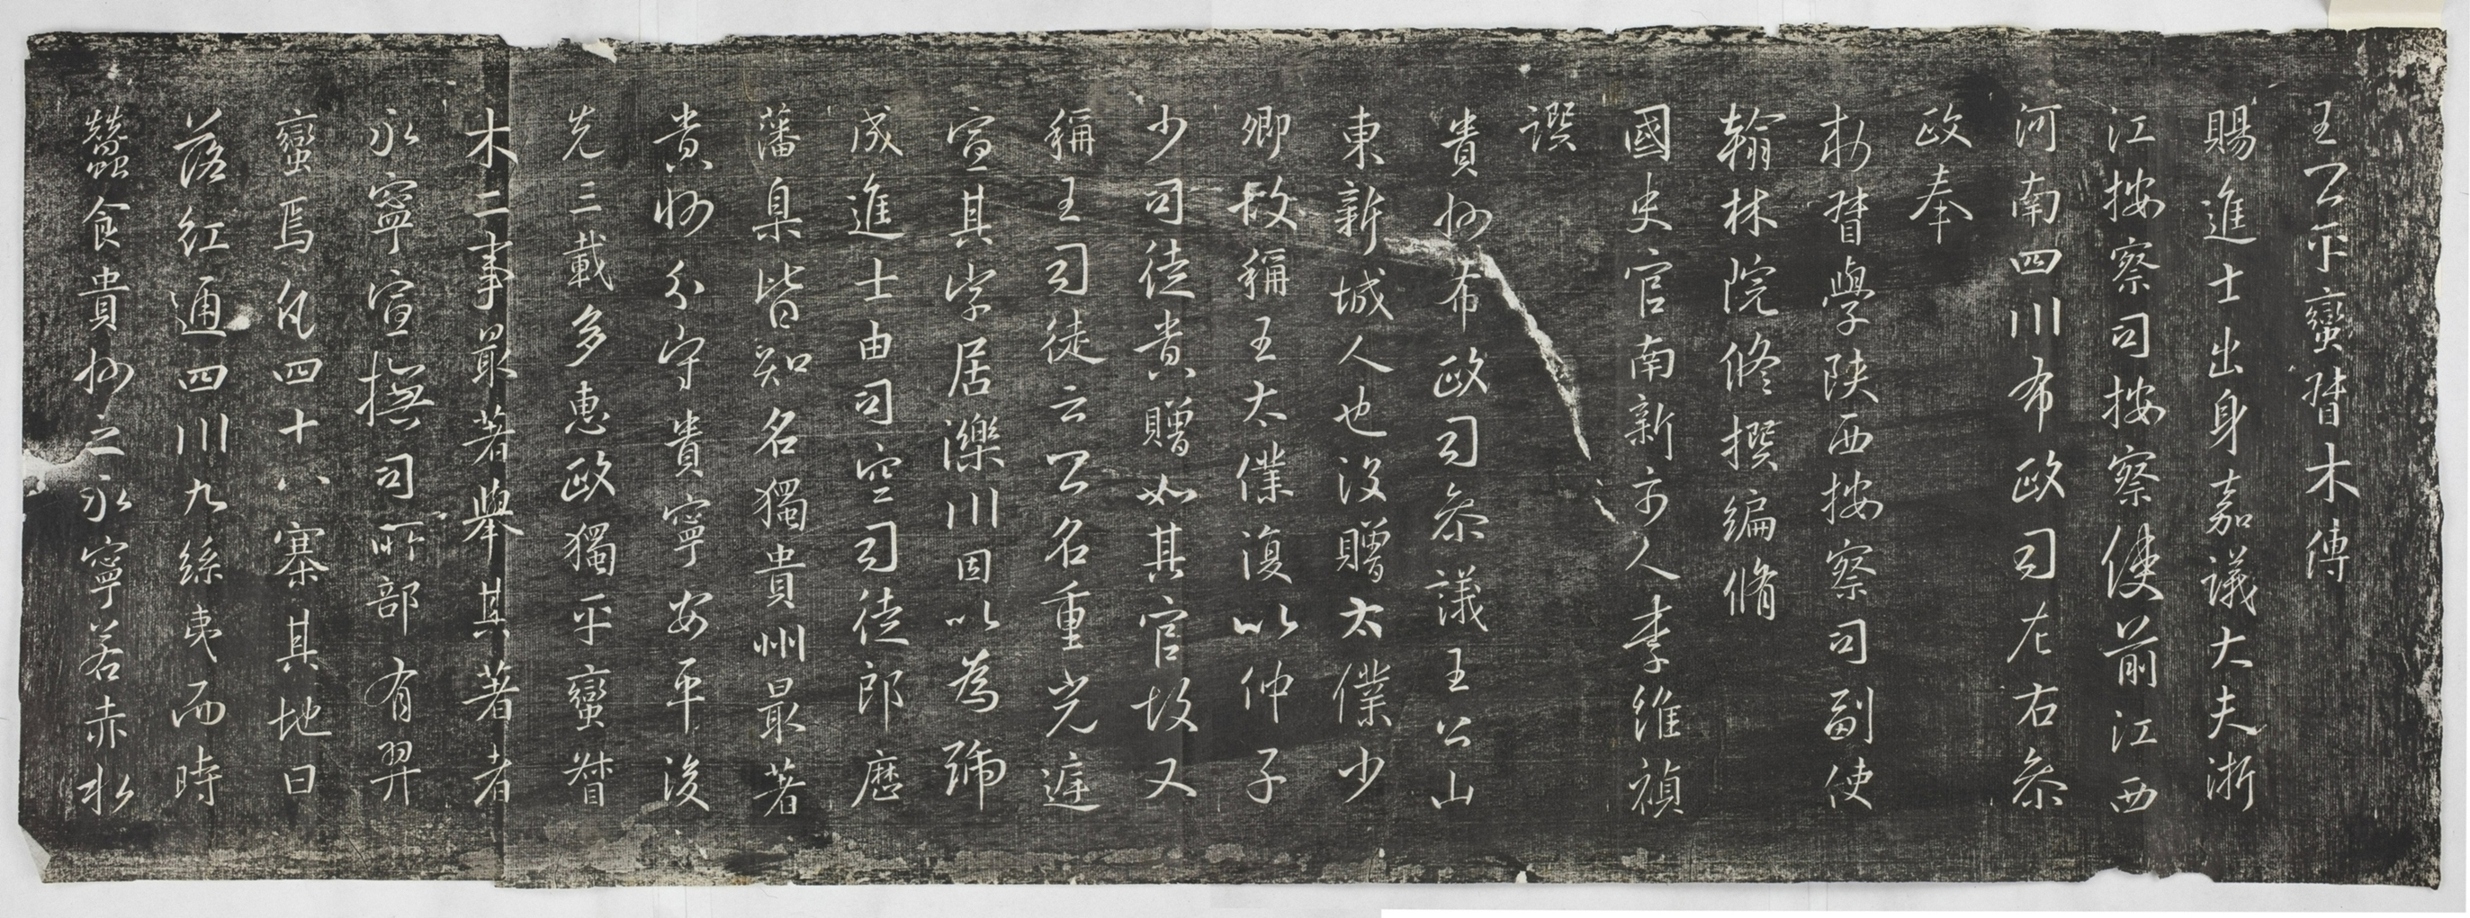 王公平蠻督木傳
賜進士出身嘉議大夫浙
江按察司按察使前江西
河南四川布政司左右叅
政奉
勑督學陝西按察司副使
翰林院修撰編脩
國史官南新市人李維禎
譔
貴州布政司叅議王公山
東新城人也沒贈太僕少
卿故稱王太僕復以仲子
少司徒貴贈如其官故又
稱王司徒云公名重光廷
宣其字居濼川因以為號
成進士由司空司徒郎歷
藩臬皆知名獨貴州最著
貴州分守貴寧安平後
先三載多惠政獨平蠻督
木二事最著舉其著者
永寧宣撫司所部有羿
蠻焉凡四十八寨其地曰
落紅通四川九絲夷而時
蠶食貴州之永寧若赤水